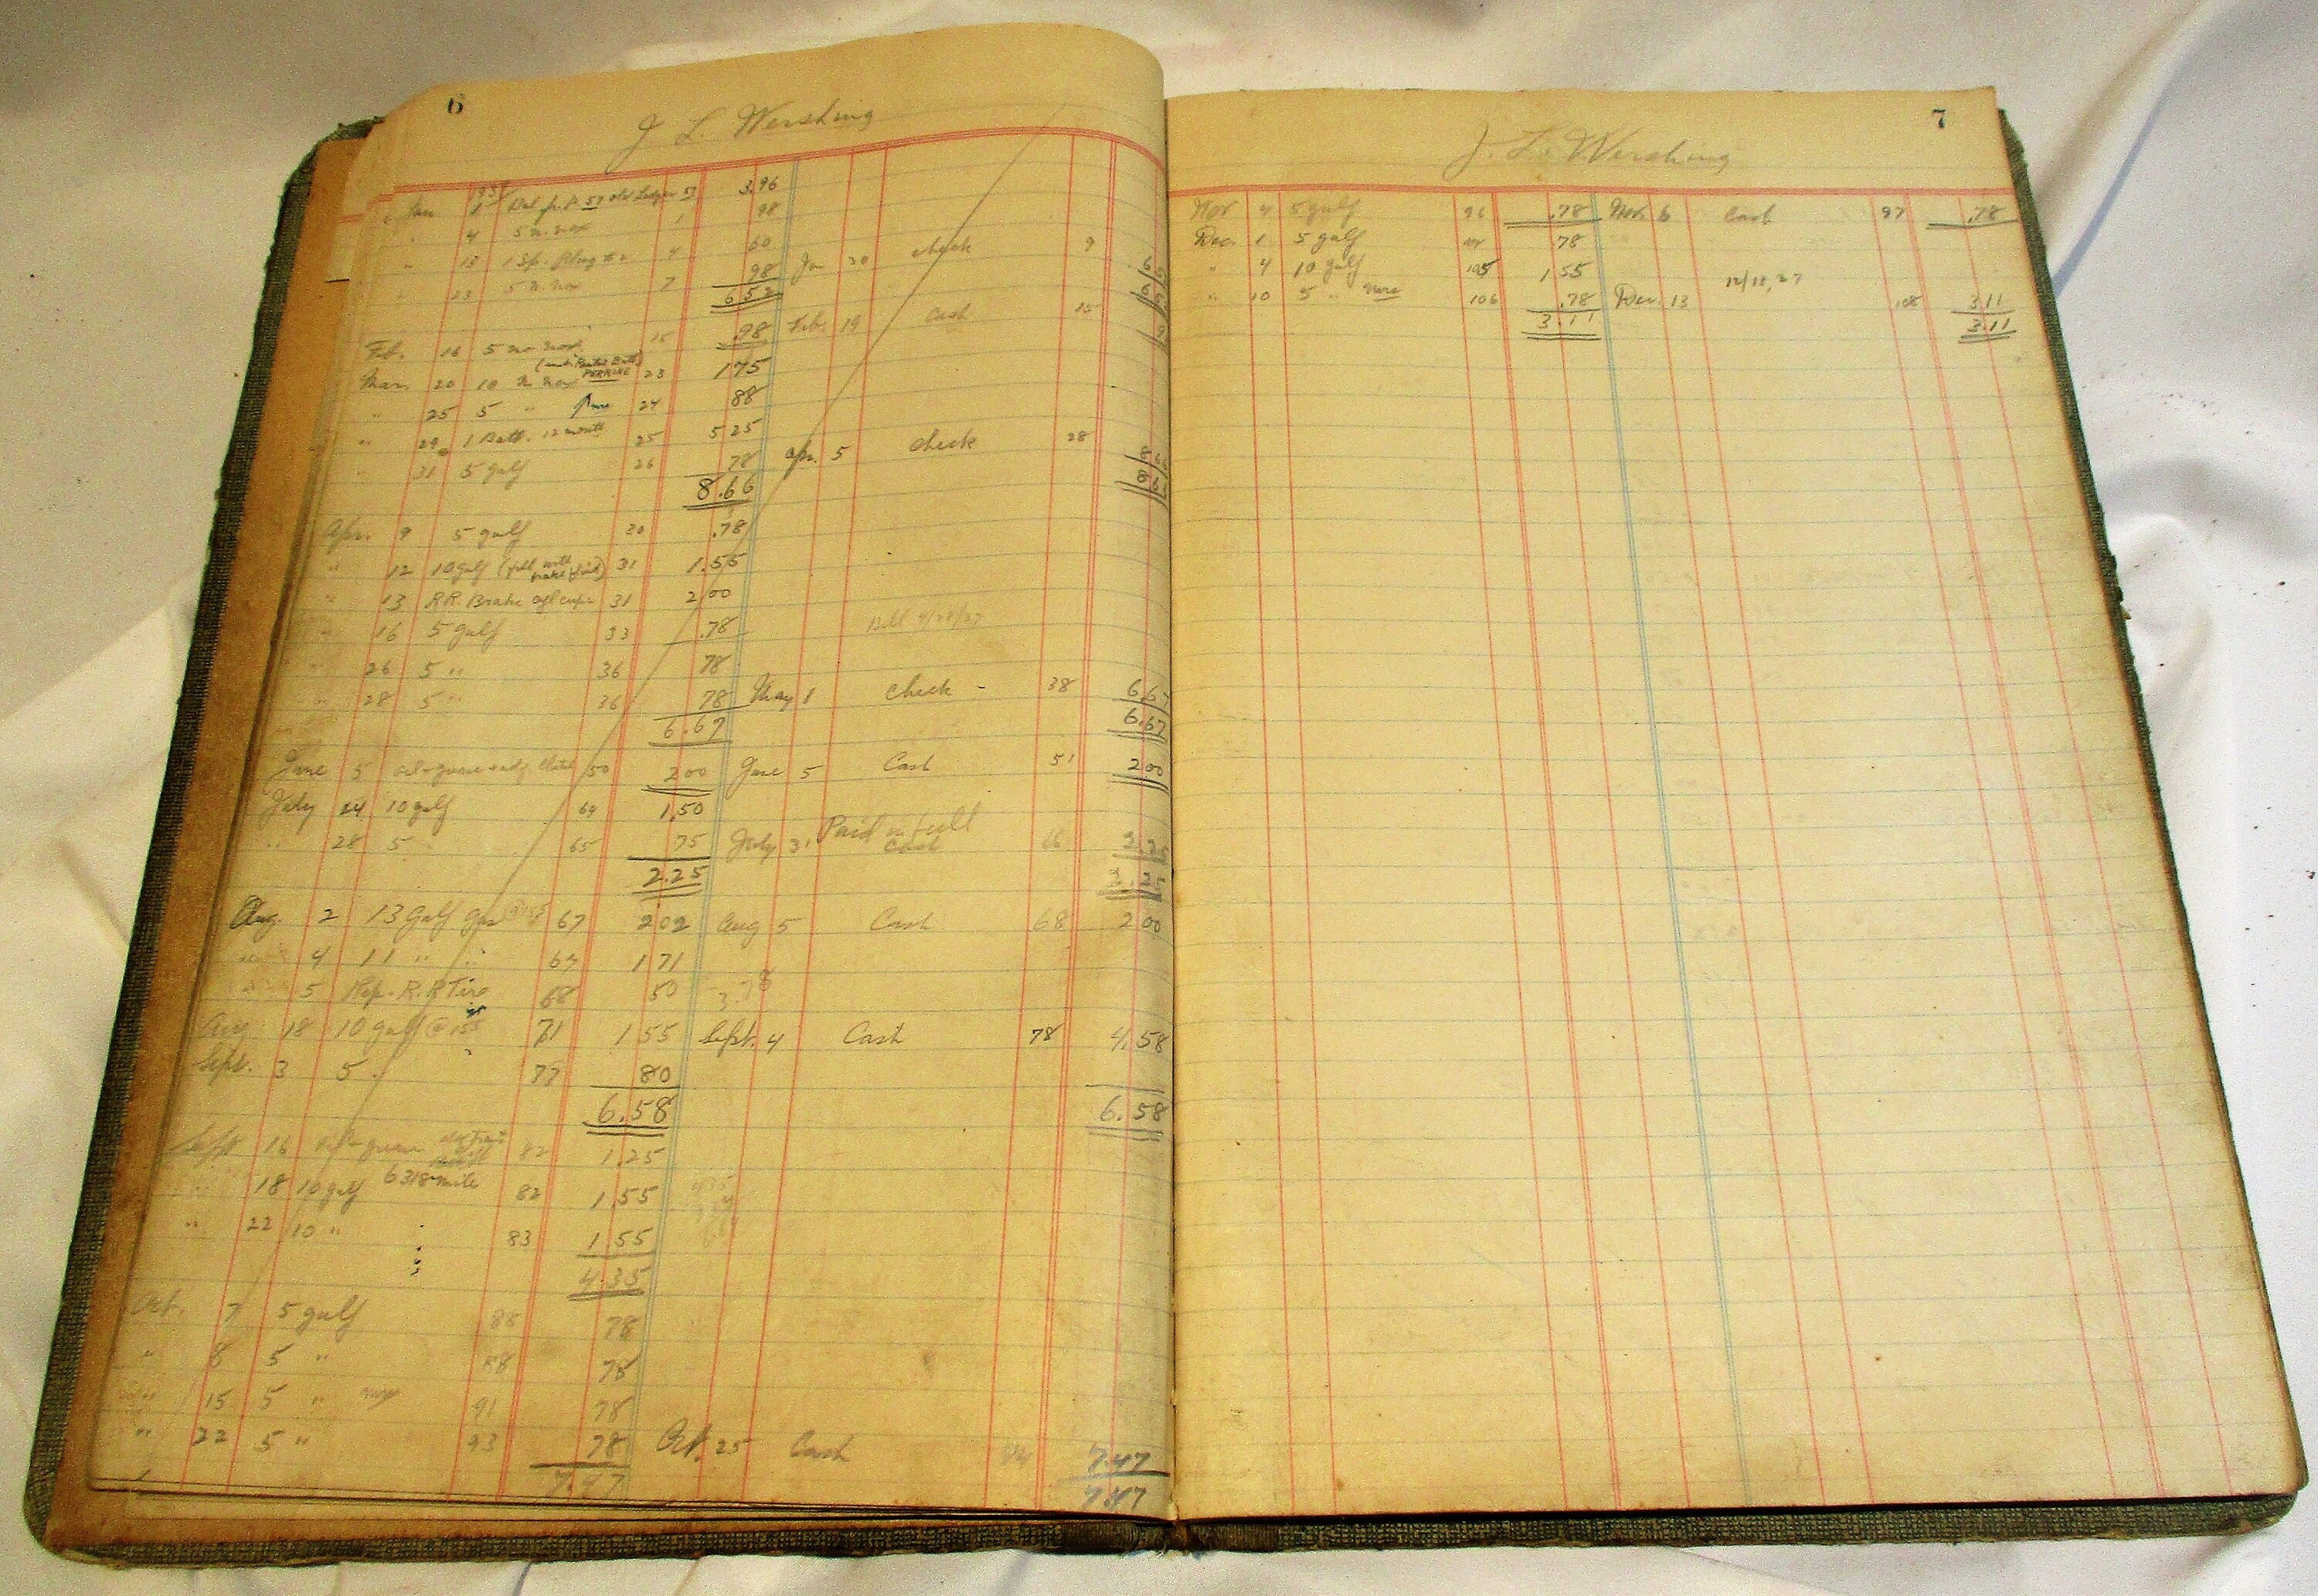 6
J L. Wershing
Jan 1 Bal fr. P. 57 old Ledger 57 3.96
" 4 5 n. nox 1 98
" 13 1 Sp. Plug 4 60
" 23 5 n. nox 7 98 Jan 30 check 9 6
6 52 6
Feb. 16 5 no nox 15 .98 Feb. 19 cash 15 9
Mar. 20 10 n nox PERRINE 23 1 75
" 25 5 " 24 88
" 29 1 Batt. 12 month 25 5 25
" 31 5 gulf 26 78 Apr. 5 check 28 8 6
8.66 8 6
Apr. 9 5 gulf 30 .78
" 12 10 gulf (fill with brake fluid) 31 1.55
" 13 R R. Brake cyl cups 31 2 00
" 16 5 gulf 33 .78 Bill 4/28/37
" 26 5 " 36 78
" 28 5 " 36 78 May 1 check - 38 6.67
6.67 6.67
June 5 oil-grease & adj clutch 50 2 00 June 5 Cash 51 2 00
July 24 10 gulf 64 1.50
" 28 5 " 65 75 July 31 Paid in full cash 66 2.25
2.25 2.25
Aug. 2 13 Gulf gas 67 2 02 Aug 5 Cash 68 2 00
4 11 " " 67 1 71
5 Rep. R. R Tire 68 50 3.78
Aug 18 10 gulf @ 15 5 71 1 55 Sept. 4 Cash 78 4.58
Sept. 3 5 " 77 80
6.58 6.58
Sept 16 oil-grease 82 1.25
" 18 10 gulf 6318 mile 82 1.55
" 22 10 " 83 1.55
4.35
Oct. 7 5 gulf 88 78
" 8 5 " 88 78
15 5 " 91 78
" 22 5 " 93 78 Oct. 25 Cash 94 7.47
7.47 7.47
7
J. L. Wershing
Nov 4 5 gulf 96 .78 Nov. 6 Cash 97 .78
Dec. 1 5 gulf .78
" 4 10 gulf 105 1 55 12/13, 37
" 10 5 " 106 .78 Dec. 13 108 3.11
3.11 3.11